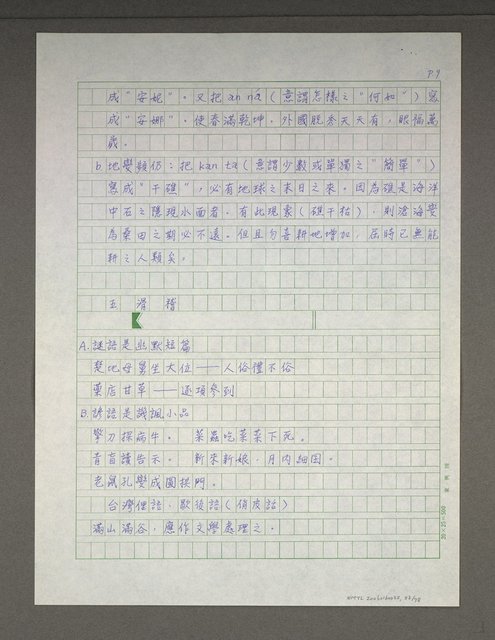 P.9
成"安妮"。又把an ná(意謂怎樣之"何如")寫
成"安娜"。使春滿乾坤。外國脫秀天天有,眼福萬
歲。
b.地變類仍:把kan ta(意謂少數或單獨之"簡單")
寫成"干礁",必有地球之末日之來。因為礁是海洋
中石之隱現水面者。有此現象(礁干枯),則滄海變
為桑田之期必不遠。但且勿喜耕地增加,屆時已無能
耕之人類矣。
五 滑稽
A.謎語是幽默短篇
墊地母舅坐大位——人俗禮不俗
藥店甘草——逐項參到
B.諺語是諷諷小品
學刀探病牛。 菜蟲吃菜菜下死。
青盲讀告示。 新來新娘,月內細囝。
老鼠孔變成圓拱門。
台灣俚語,歇後語(俏皮話)
滿山滿谷,應作文學處理之。
20×25=500